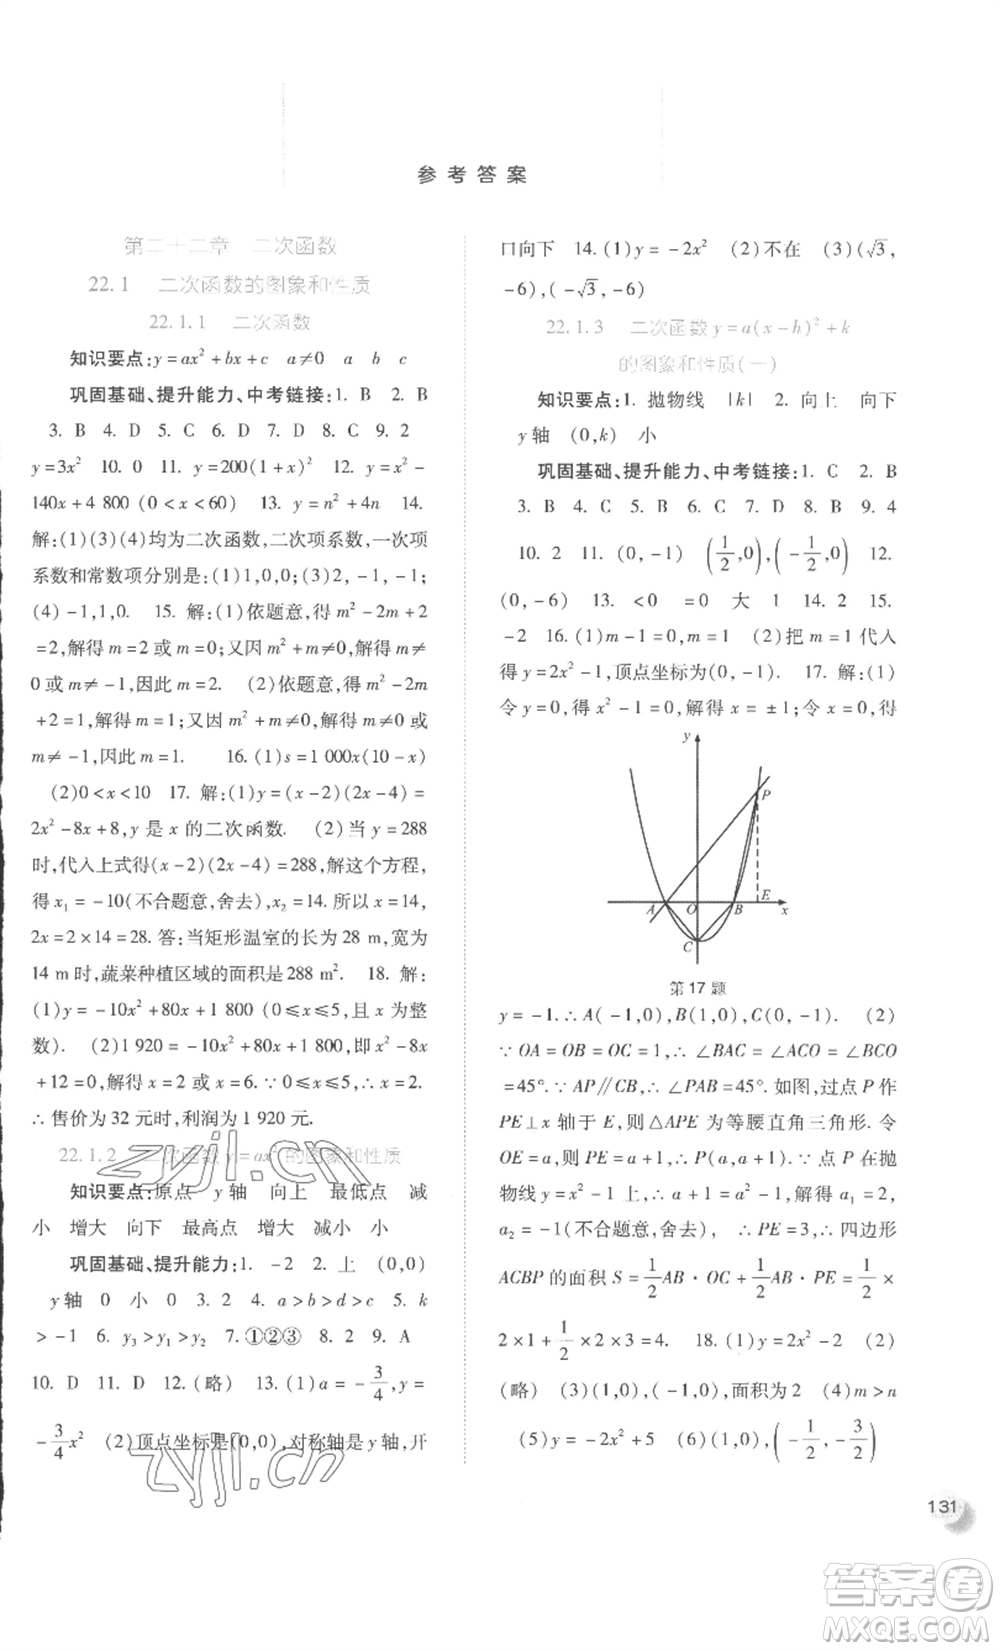 参考答案
第二十二章 二次函数
22.1 二次函数的图象和性质
22.1.1 二次函数
知识要点:y=ax²+bx+c a≠0 a b c
巩固基础、提升能力、中考链接:1. B 2. B
3. B 4. D 5. C 6. D 7. D 8. C 9. 2
y=3x² 10. 0 11. y=200(1+x)² 12. y=x²-
140x+4 800(0<x<60) 13. y=n²+4n 14.
解:(1)(3)(4)均为二次函数,二次项系数,一次项
系数和常数项分别是:(1)1,0,0;(3)2,-1,-1;
(4)-1,1,0. 15. 解:(1)依题意,得m²-2m+2
=2,解得m=2或m=0;又因m²+m≠0,解得m≠
0或m≠-1,因此m=2. (2)依题意,得m²-2m
+2=1,解得m=1;又因m²+m≠0,解得m≠0或
m≠-1,因此m=1. 16. (1)s=1 000x(10-x)
(2)0<x<10 17. 解:(1)y=(x-2)(2x-4)=
2x²-8x+8,y是x的二次函数. (2)当y=288
时,代入上式得(x-2)(2x-4)=288,解这个方程,
得x₁=-10(不合题意,舍去),x₂=14. 所以x=14,
2x=2×14=28. 答:当矩形温室的长为28 m,宽为
14 m时,蔬菜种植区域的面积是288 m². 18. 解:
(1)y=-10x²+80x+1 800 (0≤x≤5,且x为整
数). (2)1 920=-10x²+80x+1 800,即x²-8x
+12=0. 解得x=2或x=6. ∵0≤x≤5,∴x=2.
∴售价为32元时,利润为1 920元.
22.1.2 二次函数y=ax²的图象和性质
知识要点:原点 y轴 向上 最低点 减
小 增大 向下 最高点 增大 减小 小
巩固基础、提升能力:1. -2 2. 上 (0,0)
y轴 0 小 0 3. 2 4. a>b>d>c 5. k
>-1 6. y₃>y₁>y₂ 7. ①②③ 8. 2 9. A
10. D 11. D 12. (略) 13. (1)a=-3/4,y=
-3/4x² (2)顶点坐标是(0,0),对称轴是y轴,开
口向下 14. (1)y=-2x² (2)不在 (3)(√3,
-6),(-√3,-6)
22.1.3 二次函数y=a(x-h)²+k
的图象和性质(一)
知识要点:1. 抛物线 |k| 2. 向上 向下
y轴 (0,k) 小
巩固基础、提升能力、中考链接:1. C 2. B
3. B 4. C 5. C 6. C 7. D 8. B 9. 4
10. 2 11. (0,-1) (1/2,0),(-1/2,0) 12.
(0,-6) 13. <0 =0 大 1 14. 2 15.
-2 16. (1)m-1=0,m=1 (2)把m=1代入
得y=2x²-1,顶点坐标为(0,-1). 17. 解:(1)
令y=0,得x²-1=0,解得x=±1;令x=0,得
y
P
A O B E x
C
第17题
y=-1.∴A(-1,0),B(1,0),C(0,-1). (2)
∵OA=OB=OC=1,∴∠BAC=∠ACO=∠BCO
=45°.∵AP∥CB,∴∠PAB=45°.如图,过点P作
PE⊥x轴于E,则△APE为等腰直角三角形.令
OE=a,则PE=a+1,∴P(a,a+1).∵点P在抛
物线y=x²-1上,∴a+1=a²-1,解得a₁=2,
a₂=-1(不合题意,舍去). ∴PE=3,∴四边形
ACBP的面积S=1/2AB·OC+1/2AB·PE=1/2×
2×1+1/2×2×3=4. 18. (1)y=2x²-2 (2)
(略) (3)(1,0),(-1,0),面积为2 (4)m>n
(5)y=-2x²+5 (6)(1,0),(-1/2,-3/2)
zyjl.cn
zyjl.cn
131
答案圈
MXQE.COM